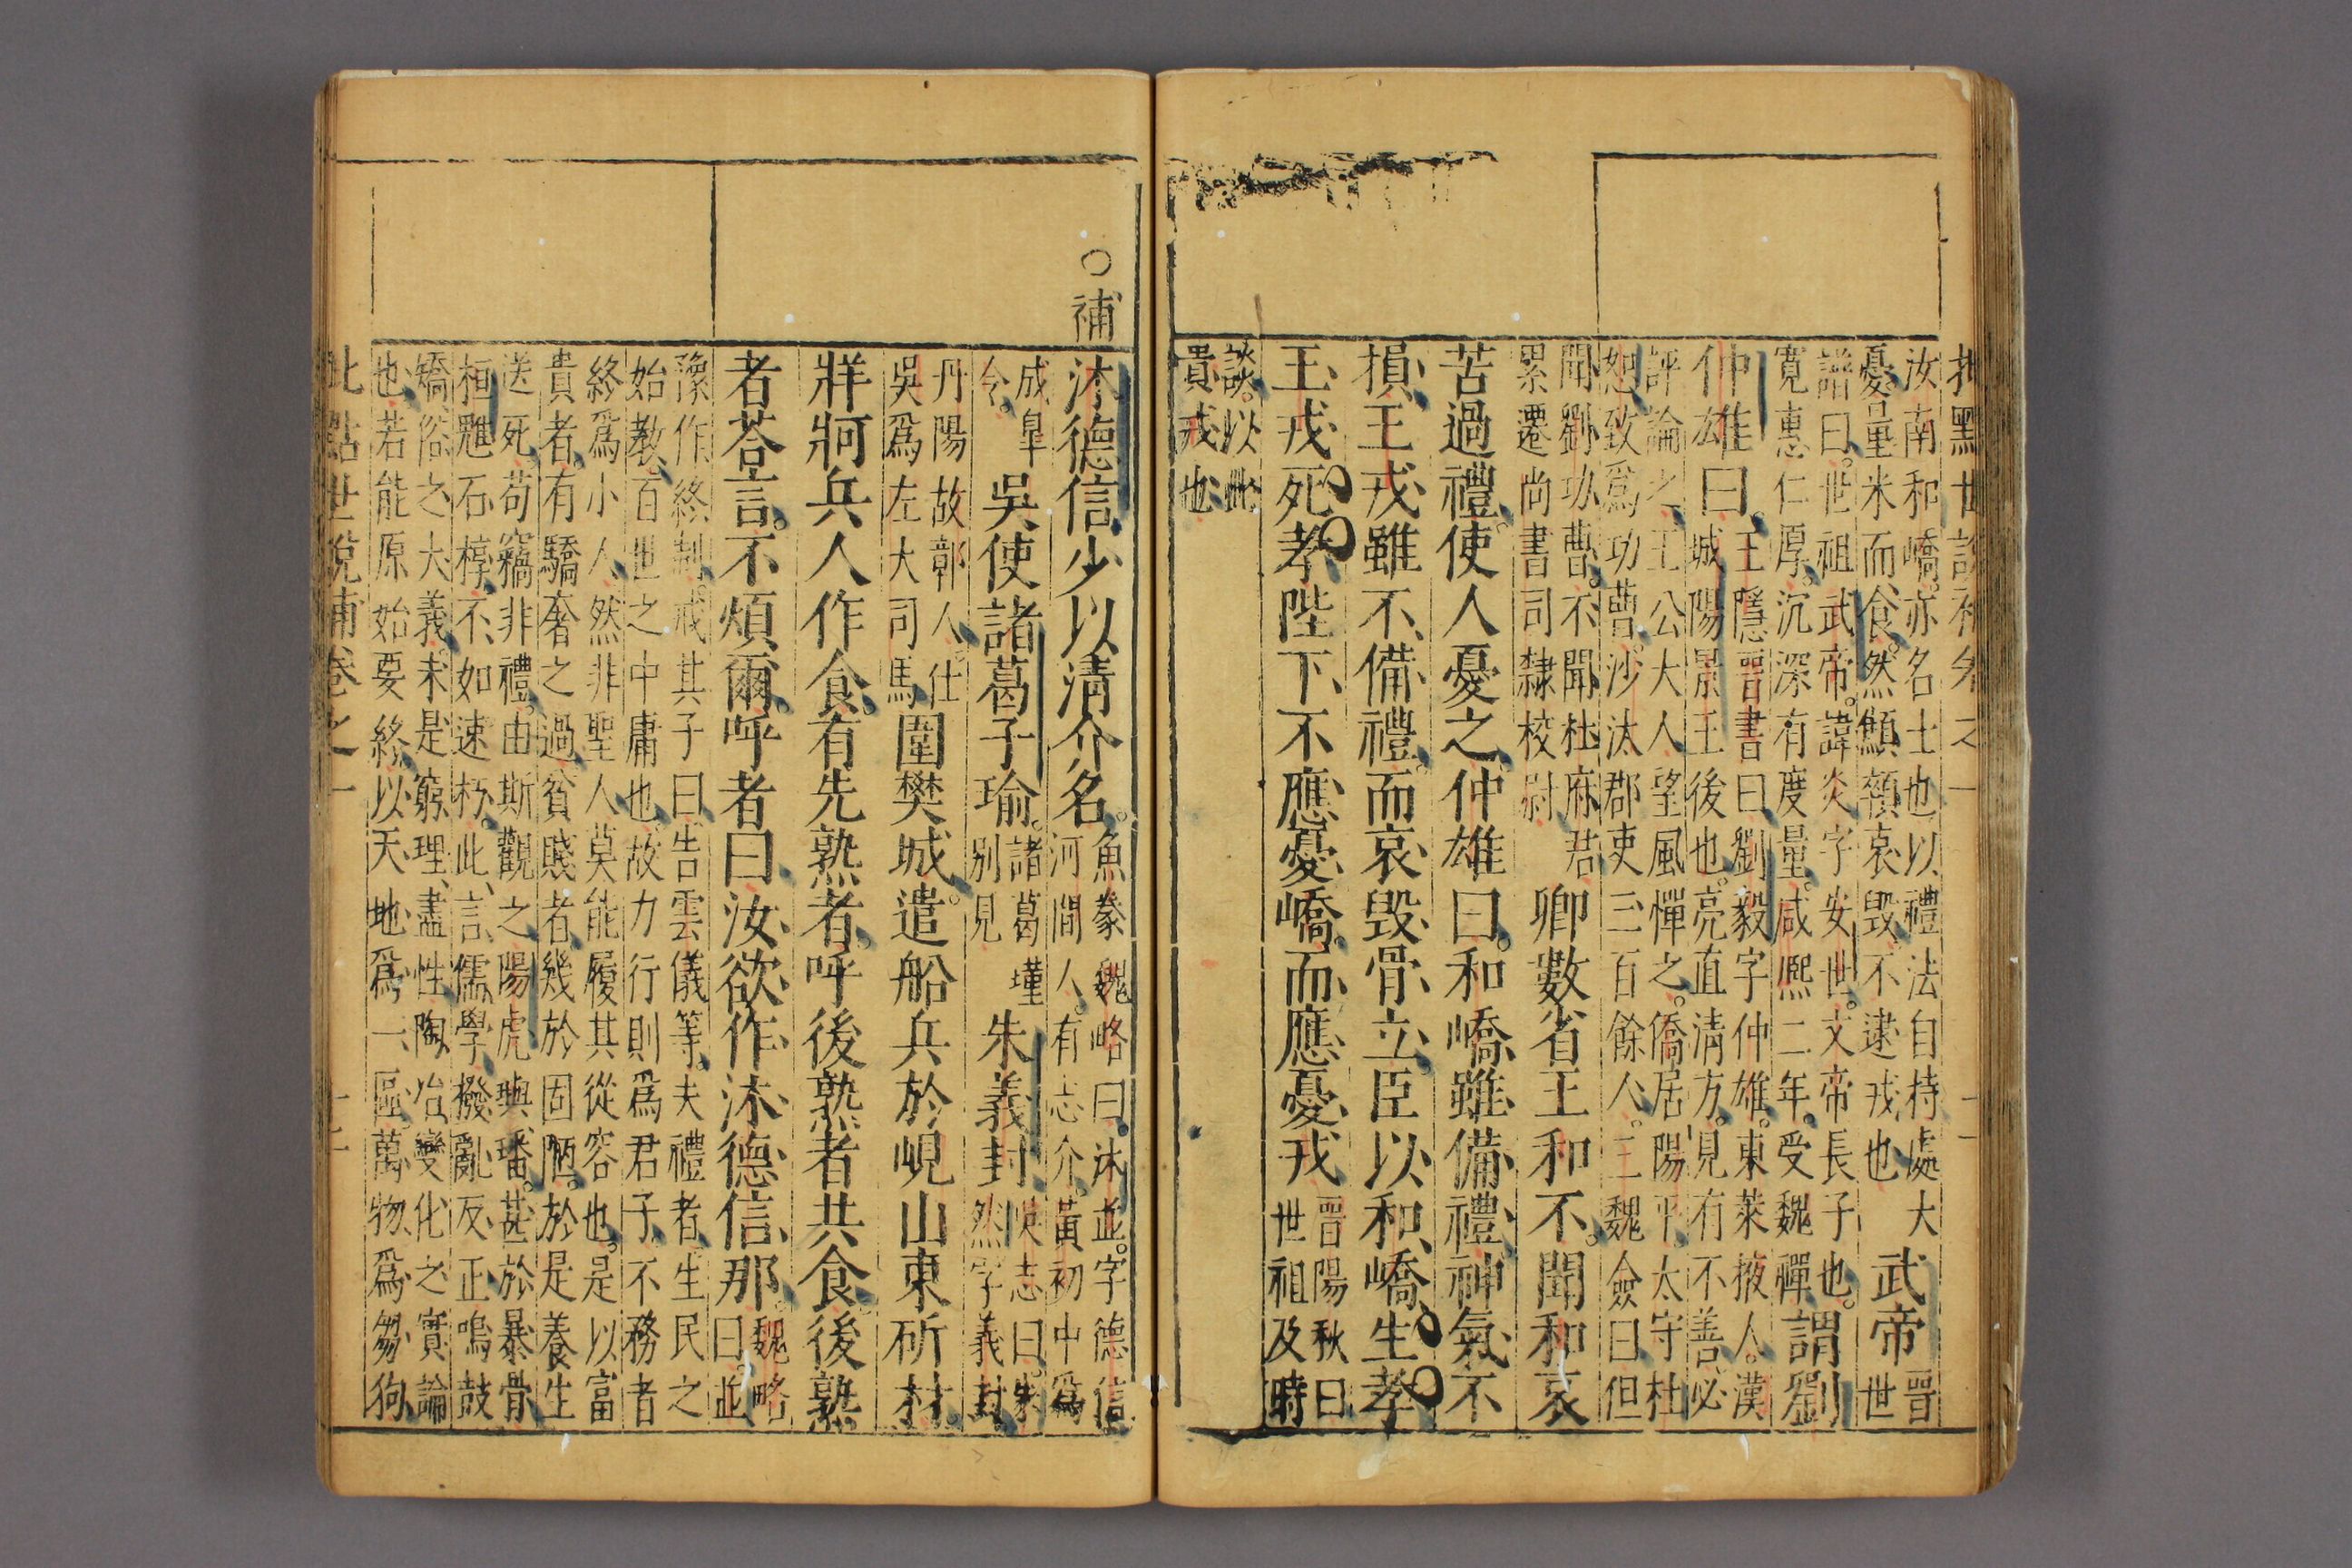 汝南和嶠。亦名士也。以禮法自持。處大
憂。量米而食。然顦顇哀毀。不逮戎也
武帝
晉
世
譜曰。世祖武帝。諱炎字安世。文帝長子也。
寬惠仁厚。沉深有度量。咸熙二年。受魏禪。
謂劉
仲雄曰。
王隱晉書曰。劉毅字仲雄。東萊掖人。漢
城陽景王後也。亮直清方。見有不善。必
評論之。王公大人。望風憚之。僑居陽平。太守杜
恕。致爲功曹。沙汰郡吏三百餘人。三魏僉曰。但
聞劉功曹。不聞杜府君
累遷尚書司隸校尉
卿數省王和不。聞和哀
苦過禮。使人憂之。仲雄曰。和嶠雖備禮。神氣不
損。王戎雖不備禮。而哀毀骨立。臣以和嶠生孝
王戎死孝。陛下不應憂嶠。而應憂戎
晉陽秋曰
世祖及時
談以此
貴戎也
○補
沐德信少以清介名。
魚豢魏略曰。沐並。字德信
河間人。有志介。黃初中爲
成臯
令。
吳使諸葛子瑜。
諸葛瑾
別見
朱義封
吳志曰。朱
然字義封
丹陽故鄣人。仕
吳爲左大司馬
圍樊城。遣船兵於峴山東斫材。
牂牁兵人作食。有先熟者。呼後熟者共食。後熟
者荅言。不煩爾。呼者曰。汝欲作沐德信那。
魏略
曰。並
豫作終制。戒其子曰。告雲儀等。夫禮者。生民之
始教。百世之中庸也。故力行則爲君子。不務者
終爲小人。然非聖人。莫能履其從容也。是以富
貴者。有驕奢之過。貧賤者。幾於固陋。於是養生
送死。苟竊非禮。由斯觀之。陽虎璵璠。甚於暴骨
桓魋石椁。不如速朽。此言儒學撥亂反正。鳴鼓
矯俗之大義。未是窮理盡性。陶冶變化之實論
也。若能原始要終。以天地爲一區。萬物爲芻狗